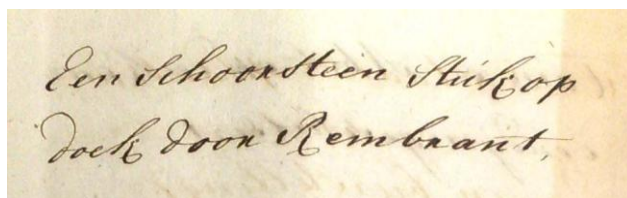 Een Schoorsteen Stuk op
doek door Rembrant,